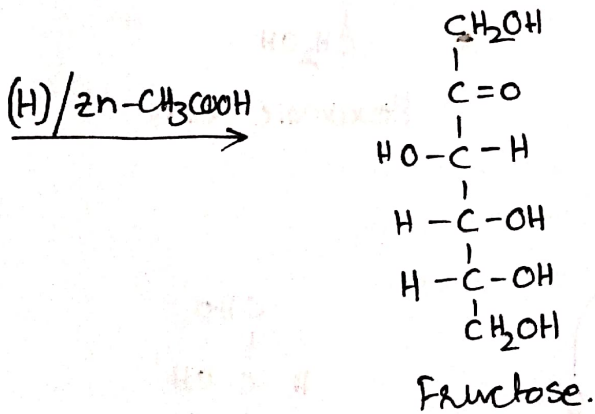 (H)/Zn-CH3COOH
CH2OH
C=O
HO-C-H
H-C-OH
H-C-OH
CH2OH
Fructose.